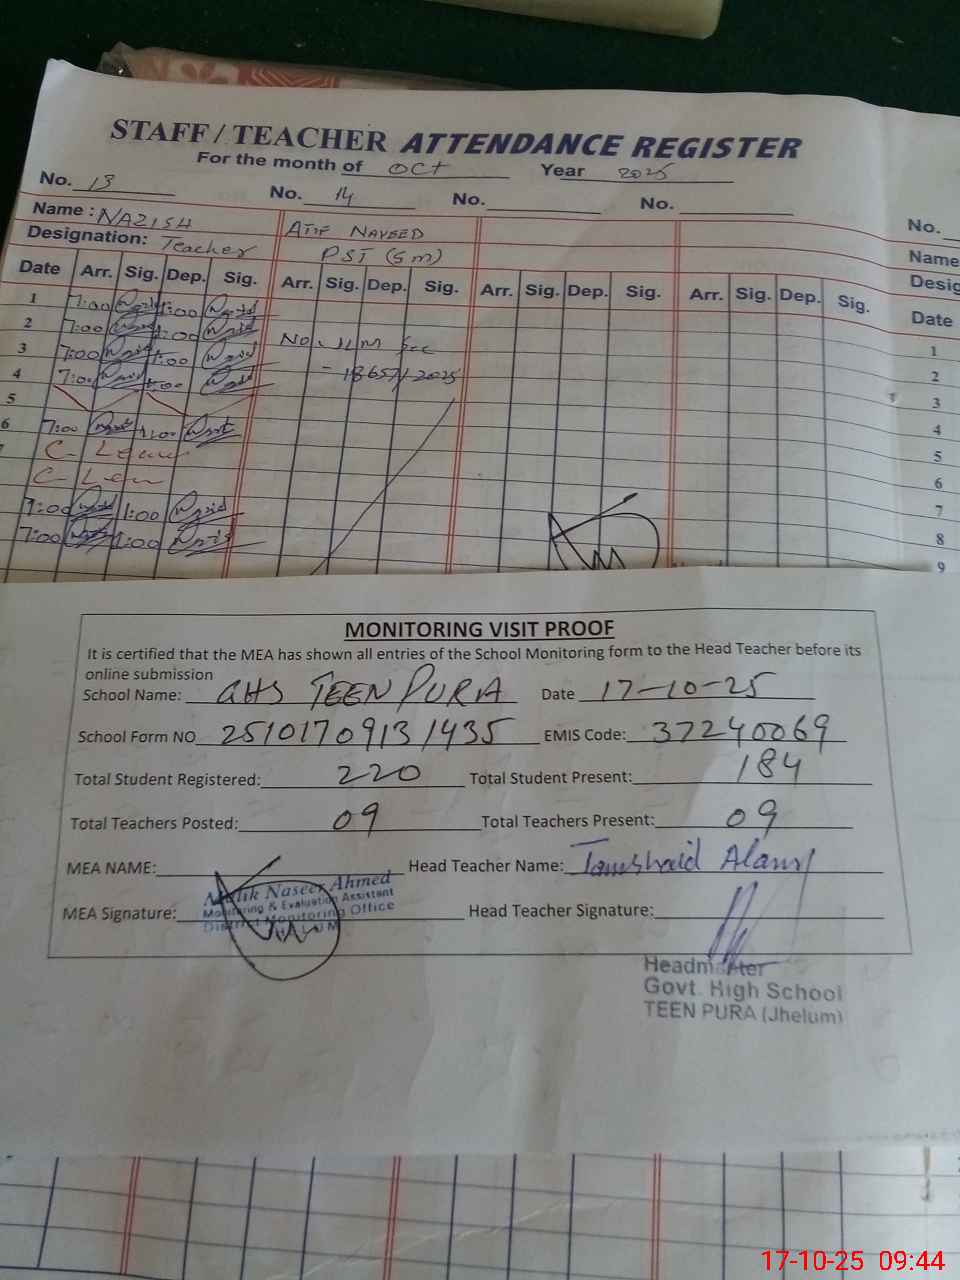 STAFF / TEACHER ATTENDANCE REGISTER
For the month of Oct Year 2025
No. 13 No. 14 No. No. No.
Name : NAZISH ATIF NAVEED Name
Designation: Teacher PST (S m) Desig
Date Arr. Sig. Dep. Sig. Arr. Sig. Dep. Sig. Arr. Sig. Dep. Sig. Arr. Sig. Dep. Sig. Date
1 7:00 1:00 1
2 7:00 1:00 2
3 7:00 1:00 No. JLM 3
4 7:00 1:00 18657/2025 4
5 5
6 7:00 1:00 6
7 C- Leave 7
C- Leave 8
7:00 1:00 9
7:00 1:00
MONITORING VISIT PROOF
It is certified that the MEA has shown all entries of the School Monitoring form to the Head Teacher before its
online submission
School Name: GHS TEEN PURA Date 17-10-25
School Form NO 25101709131435 EMIS Code: 37240069
Total Student Registered: 220 Total Student Present: 184
Total Teachers Posted: 09 Total Teachers Present: 09
MEA NAME: Head Teacher Name: Tamshaid Alam
Malik Naseer Ahmed
Monitoring & Evaluation Assistant
MEA Signature: District Monitoring Office Head Teacher Signature:
JHALUM
Headmaster
Govt. High School
TEEN PURA (Jhelum)
17-10-25 09:44